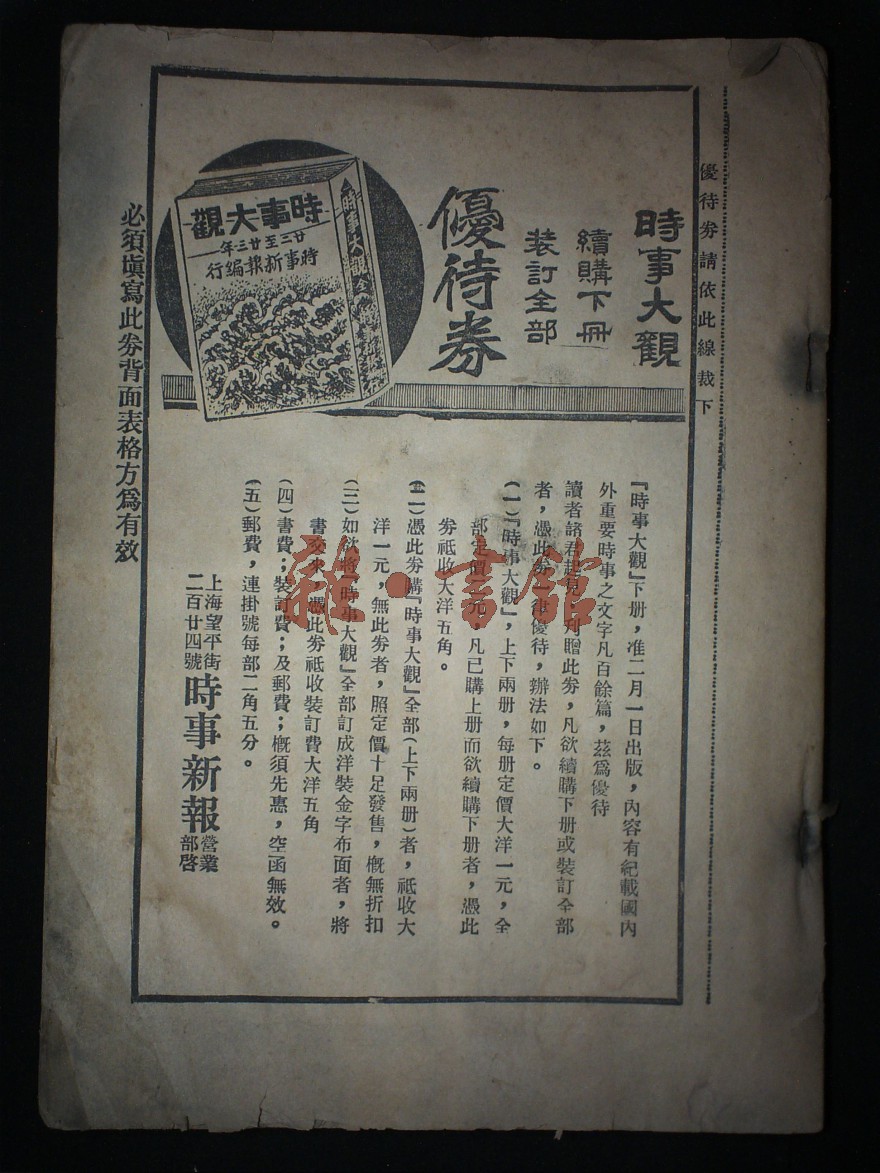 優待券請依此線裁下
時事大觀
續購下冊
裝訂全部
優待券
時事大觀全
時事大觀
廿二至廿三年
時事新報編行
『時事大觀』下册，准二月一日出版，內容有紀載國內
外重要時事之文字凡百餘篇，茲爲優待
讀者諸君起見，刋贈此券，凡欲續購下册或裝訂全部
者，憑此券一律優待，辦法如下。
(一)『時事大觀』，上下兩册，每册定價大洋一元，全
部定價二元，凡已購上册而欲續購下册者，憑此
券祗收大洋五角。
(二)憑此券購『時事大觀』全部(上下兩册)者，祗收大
洋一元，無此券者，照定價十足發售，概無折扣
(三)如欲將『時事大觀』全部訂成洋裝金字布面者，將
書交來，憑此券祗收裝訂費大洋五角
(四)書費；裝訂費；及郵費；概須先惠，空函無效。
(五)郵費，連掛號每部二角五分。
上海望平街
二百廿四號
時事新報
營業
部啓
必須塡寫此券背面表格方爲有效
雜·書館